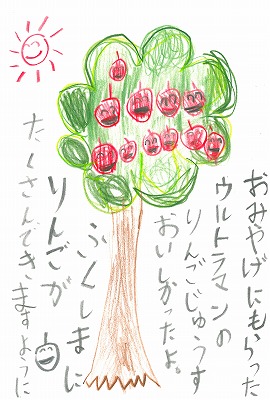 おみやげにもらった
ウルトラマンの
りんごじゅうす
おいしかったよ。
ふくしまに
りんごが
たくさんできますように